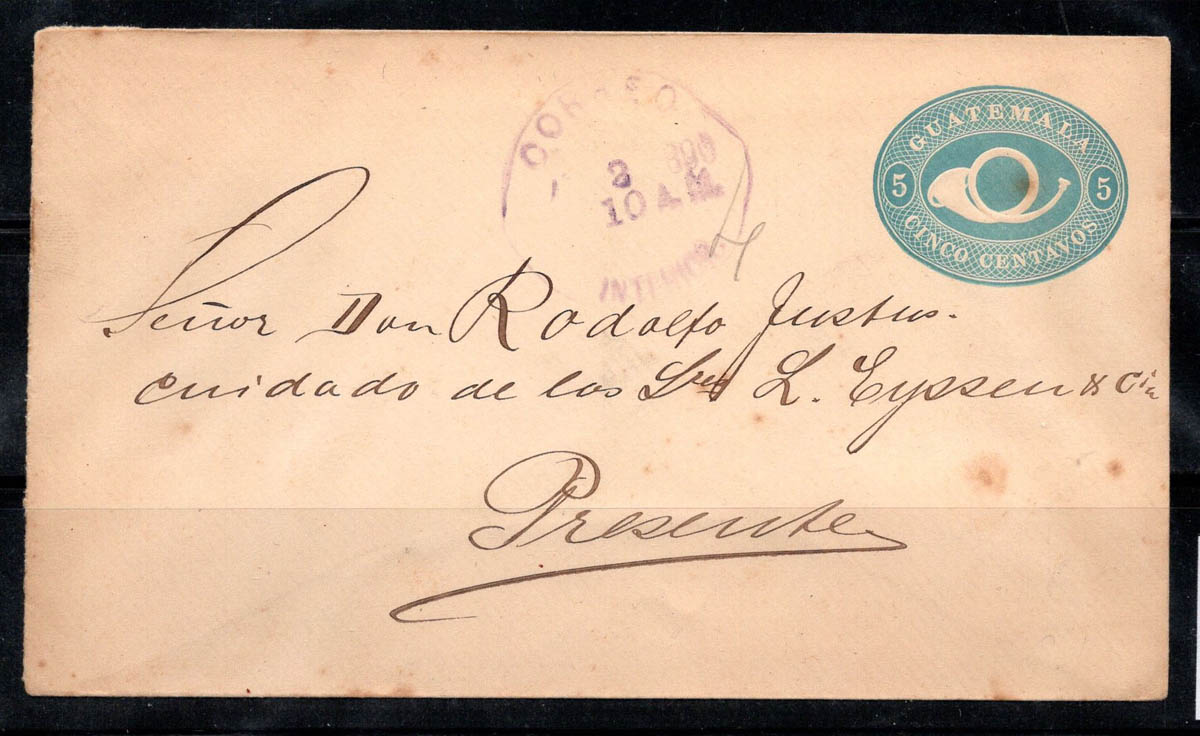 CORREO
2 890
10 A.M.
INTERIOR
GUATEMALA
5 5
CINCO CENTAVOS
Señor Don Rodolfo Justus.
cuidado de los Sres L. Eyssen & Cia
Presente